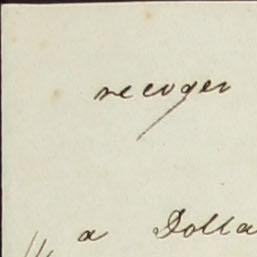 recoger
a Dolla